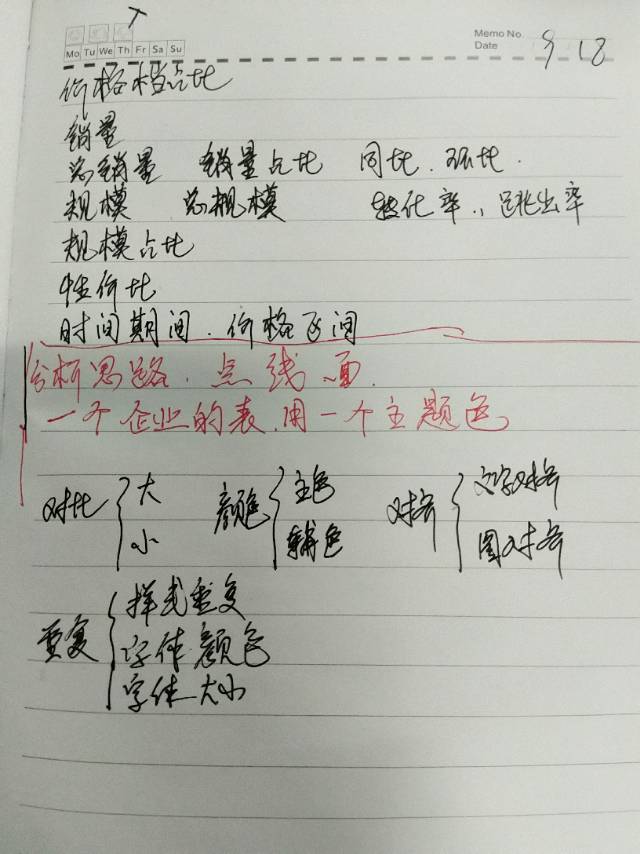 Memo No.
Mo Tu We Th Fr Sa Su
Date 9 18
价格档占比
销量
总销量 销量占比 同比.环比.
规模 总规模 转化率.,跳出率
规模占比
性价比
时间期间.价格区间
分析思路.点线面.
一个企业的表.用一个主题色
对比{大 颜色{主色 对齐{文字对齐
小 辅色 图对齐
重复{样式重复
字体颜色
字体大小